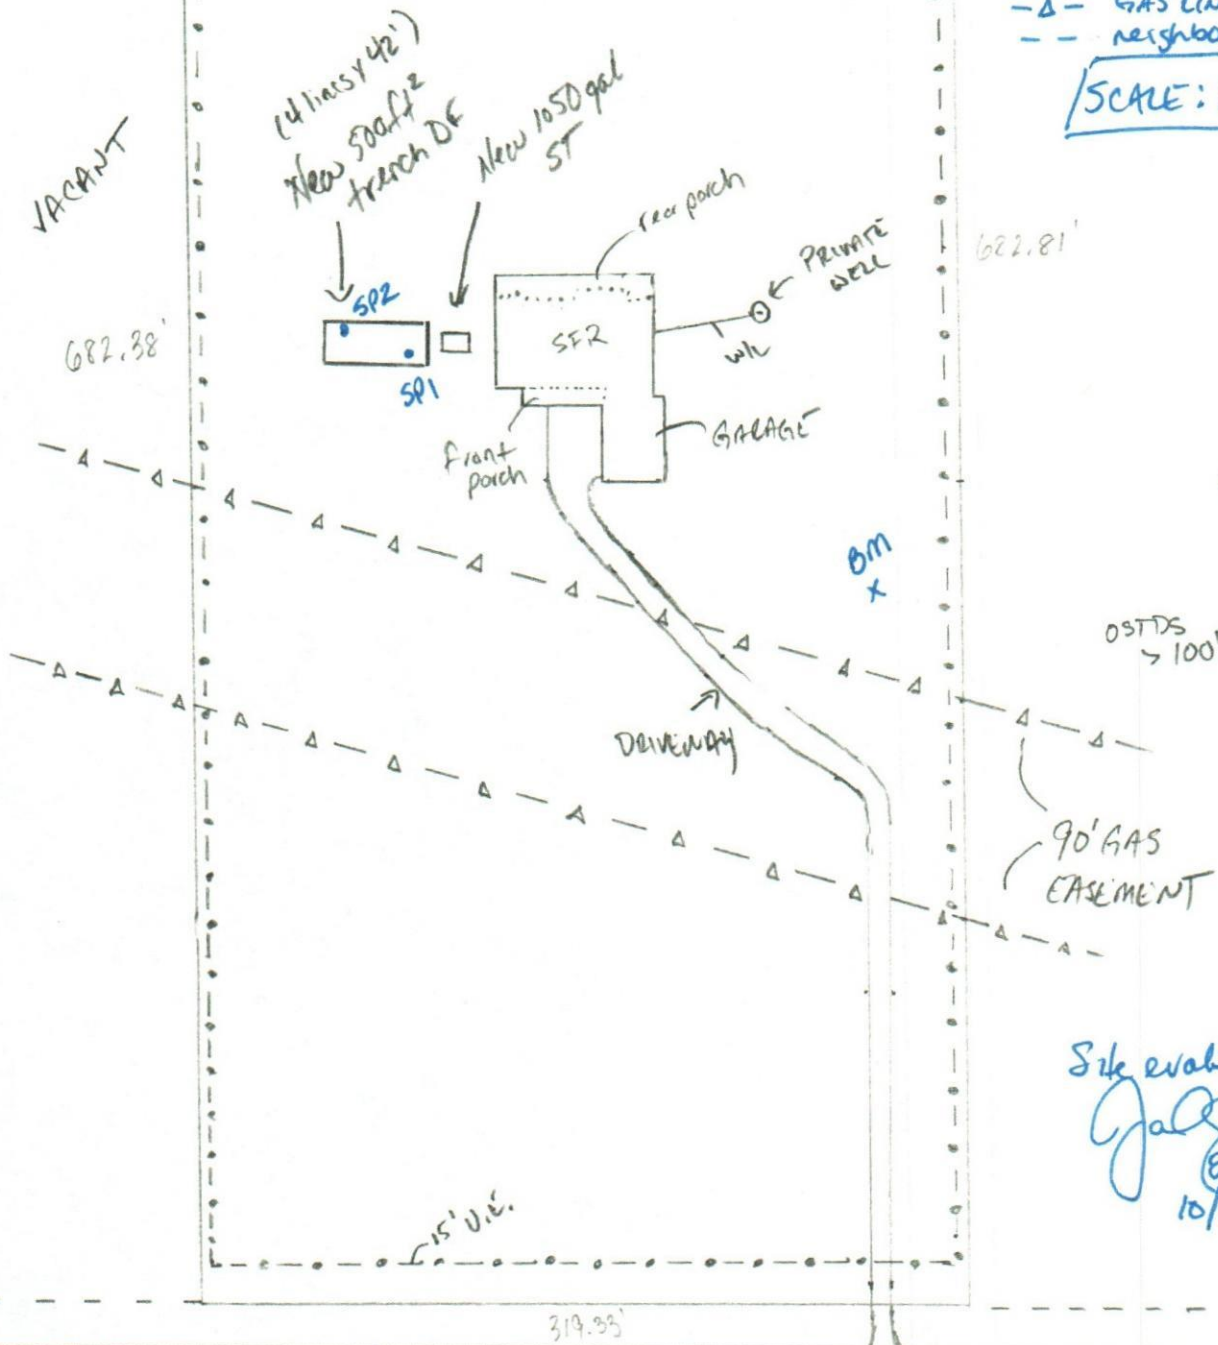 -Δ- GAS LIN
-- neighbo
SCALE:
(4 lines x 42')
New 500ft²
trench DF
New 1050 gal
ST
VACANT
rear porch
PRIVATE
WELL
682.81'
SP2
682.38'
SFR
w/L
SP1
GARAGE
front
porch
BM
x
OSTDS
> 100'
DRIVEWAY
90' GAS
EASEMENT
Site eval
10/
15' U.E.
319.33'